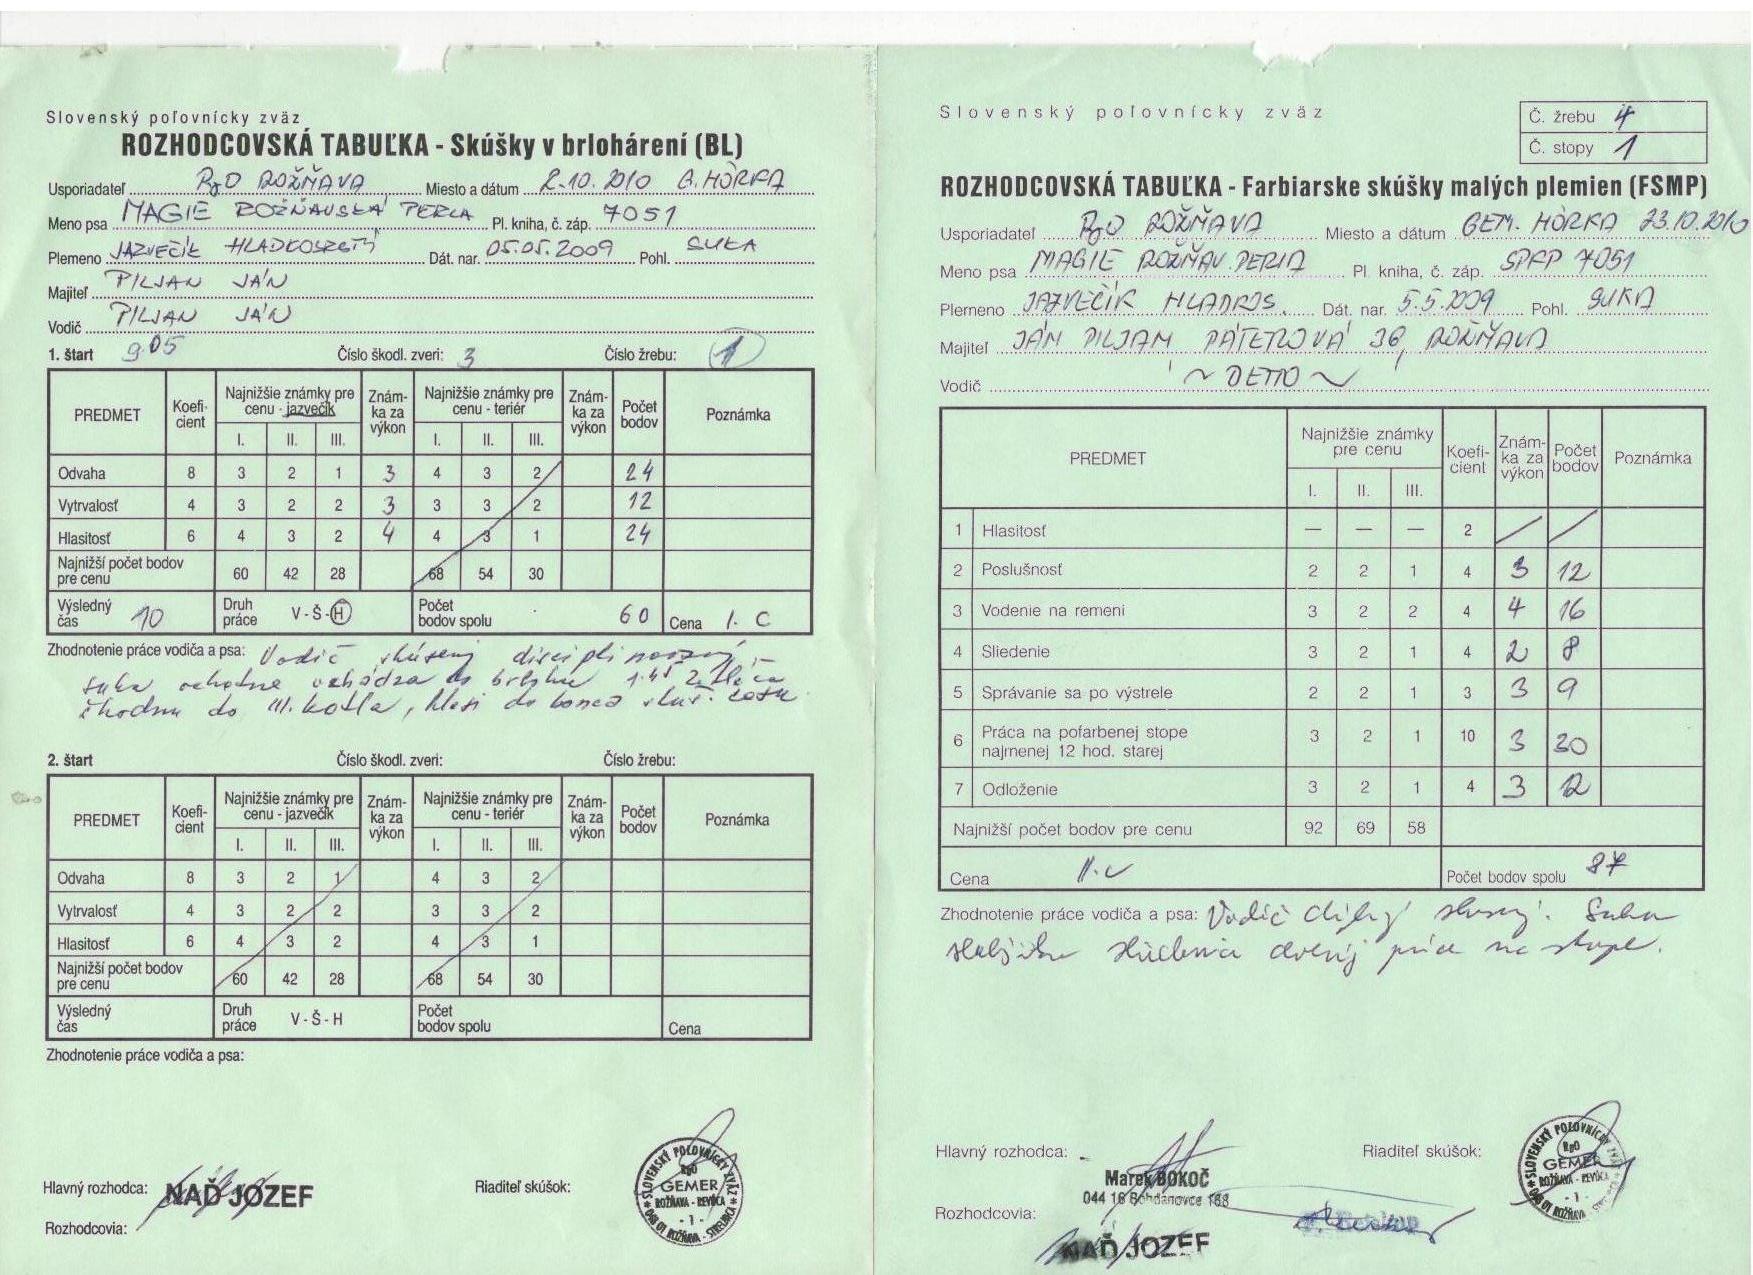 Slovenský poľovnícky zväz
ROZHODCOVSKÁ TABUĽKA - Skúšky v brlohárení (BL)
Usporiadateľ RgO ROŽŇAVA Miesto a dátum 2.10.2010 G. HÔRKA
Meno psa MAGIE ROŽŇAVSKÁ PERLA Pl. kniha, č. záp. 7051
Plemeno JAZVEČÍK HLADKOSRSTÍ Dát. nar. 05.05.2009 Pohl. SUKA
Majiteľ PILJAN JÁN
Vodič PILJAN JÁN
1. štart 9 05 Číslo škodl. zveri: 3 Číslo žrebu: 1
PREDMET Koefi-cient Najnižšie známky pre cenu - jazvečík I. II. III. Znám-ka za výkon Najnižšie známky pre cenu - teriér I. II. III. Znám-ka za výkon Počet bodov Poznámka
Odvaha 8 3 2 1 3 4 3 2 24
Vytrvalosť 4 3 2 2 3 3 3 2 12
Hlasitosť 6 4 3 2 4 4 3 1 24
Najnižší počet bodov pre cenu 60 42 28 68 54 30
Výsledný čas 10 Druh práce V - Š - H Počet bodov spolu 60 Cena I. C
Zhodnotenie práce vodiča a psa: Vodič skúsený disciplinovaný
suka ochotne vchádza do brlohu
do III. kotla, hlási do konca
2. štart Číslo škodl. zveri: Číslo žrebu:
PREDMET Koefi-cient Najnižšie známky pre cenu - jazvečík I. II. III. Znám-ka za výkon Najnižšie známky pre cenu - teriér I. II. III. Znám-ka za výkon Počet bodov Poznámka
Odvaha 8 3 2 1 4 3 2
Vytrvalosť 4 3 2 2 3 3 2
Hlasitosť 6 4 3 2 4 3 1
Najnižší počet bodov pre cenu 60 42 28 68 54 30
Výsledný čas Druh práce V - Š - H Počet bodov spolu Cena
Zhodnotenie práce vodiča a psa:
Hlavný rozhodca: NAĎ JOZEF Riaditeľ skúšok:
Rozhodcovia:
SLOVENSKÝ POĽOVNÍCKY ZVÄZ RgO GEMER ROŽŇAVA - REVÚCA - 1 - 048 01 ROŽŇAVA
Slovenský poľovnícky zväz
Č. žrebu 4
Č. stopy 1
ROZHODCOVSKÁ TABUĽKA - Farbiarske skúšky malých plemien (FSMP)
Usporiadateľ RgO ROŽŇAVA Miesto a dátum GEM. HÔRKA 23.10.2010
Meno psa MAGIE ROŽŇAV. PERLA Pl. kniha, č. záp. SPFP 7051
Plemeno JAZVEČÍK HLADKOS. Dát. nar. 5.5.2009 Pohl. SUKA
Majiteľ JÁN PILJAN PÁTEROVÁ 36, ROŽŇAVA
Vodič ~ DETTO ~
PREDMET Najnižšie známky pre cenu I. II. III. Koefi-cient Znám-ka za výkon Počet bodov Poznámka
1 Hlasitosť – – – 2 / /
2 Poslušnosť 2 2 1 4 3 12
3 Vodenie na remeni 3 2 2 4 4 16
4 Sliedenie 3 2 1 4 2 8
5 Správanie sa po výstrele 2 2 1 3 3 9
6 Práca na pofarbenej stope najmenej 12 hod. starej 3 2 1 10 3 30
7 Odloženie 3 2 1 4 3 12
Najnižší počet bodov pre cenu 92 69 58
Cena II. C Počet bodov spolu 87
Zhodnotenie práce vodiča a psa: Vodič Suka
práce na stope.
Hlavný rozhodca: Marek BOKOČ Riaditeľ skúšok:
044 16 Bohdanovce 188
Rozhodcovia:
NAĎ JOZEF
SLOVENSKÝ POĽOVNÍCKY ZVÄZ RgO GEMER ROŽŇAVA - REVÚCA - 1 - 048 01 ROŽŇAVA